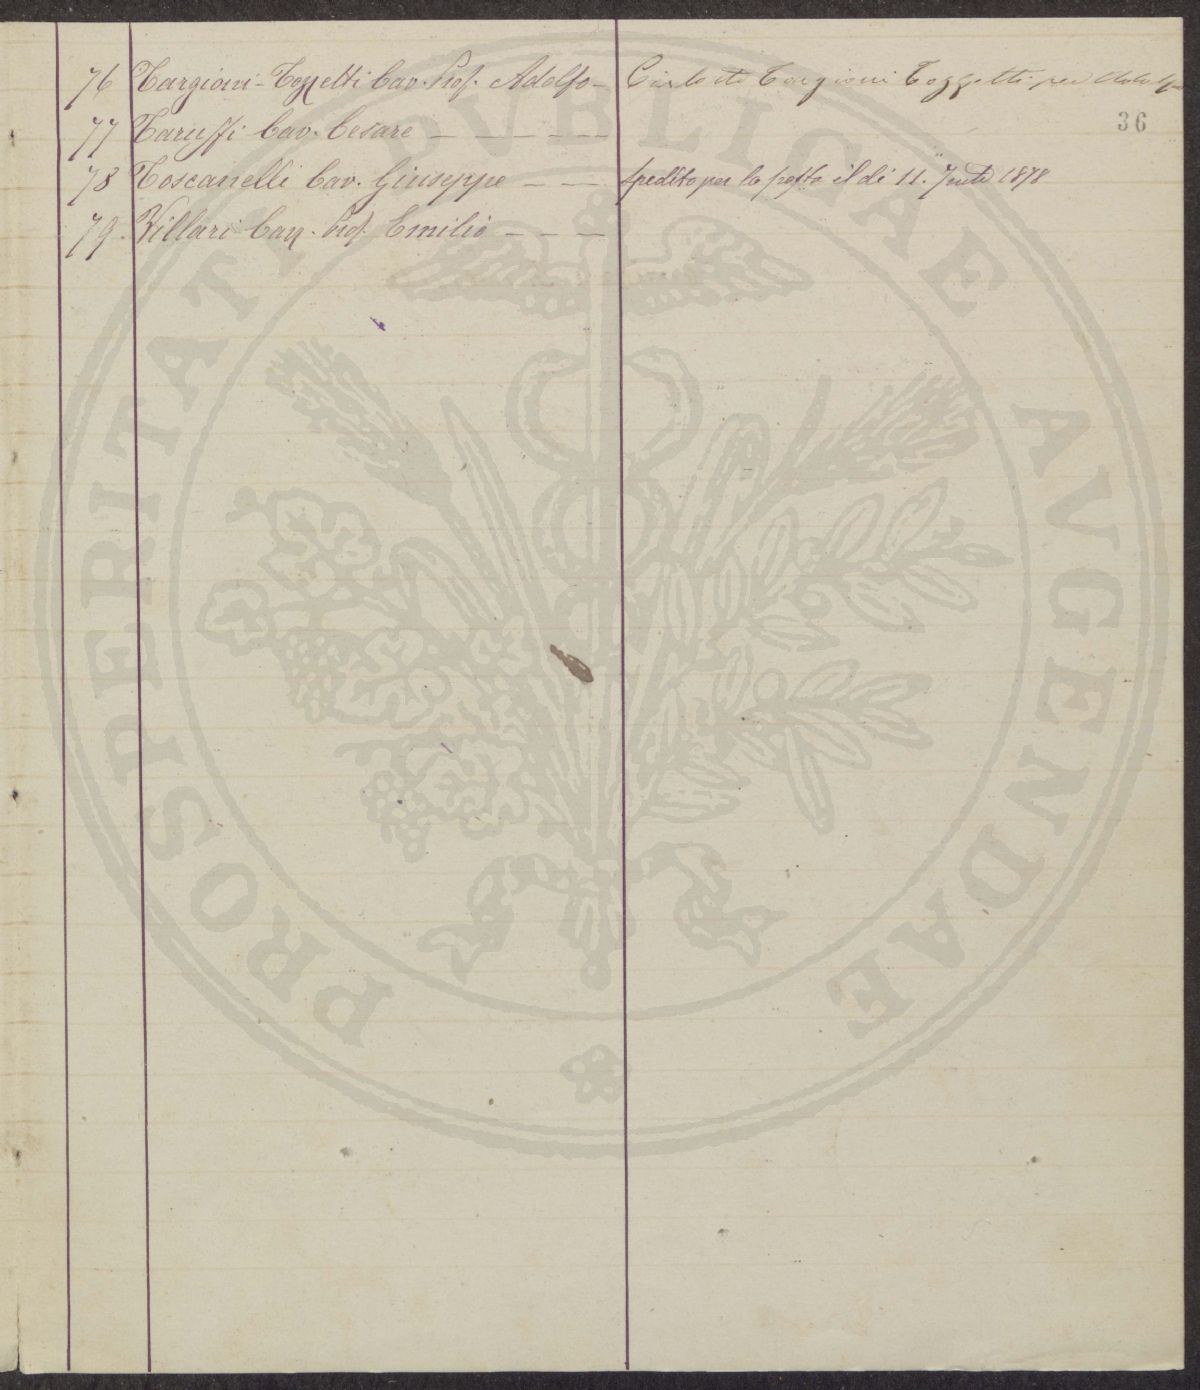 76 Targioni-Tozzetti Cav. Prof. Adolfo – Targioni Tozzetti per Adolfo
36
77 Taruffi Cav. Cesare – – – – –
78 Toscanelli Cav. Giuseppe – – – Spedito per la posta il dì 11. 1878
79. Villari Cav. Prof. Emilio – – – –
PROSPERITATI PVBLICAE AVGENDAE